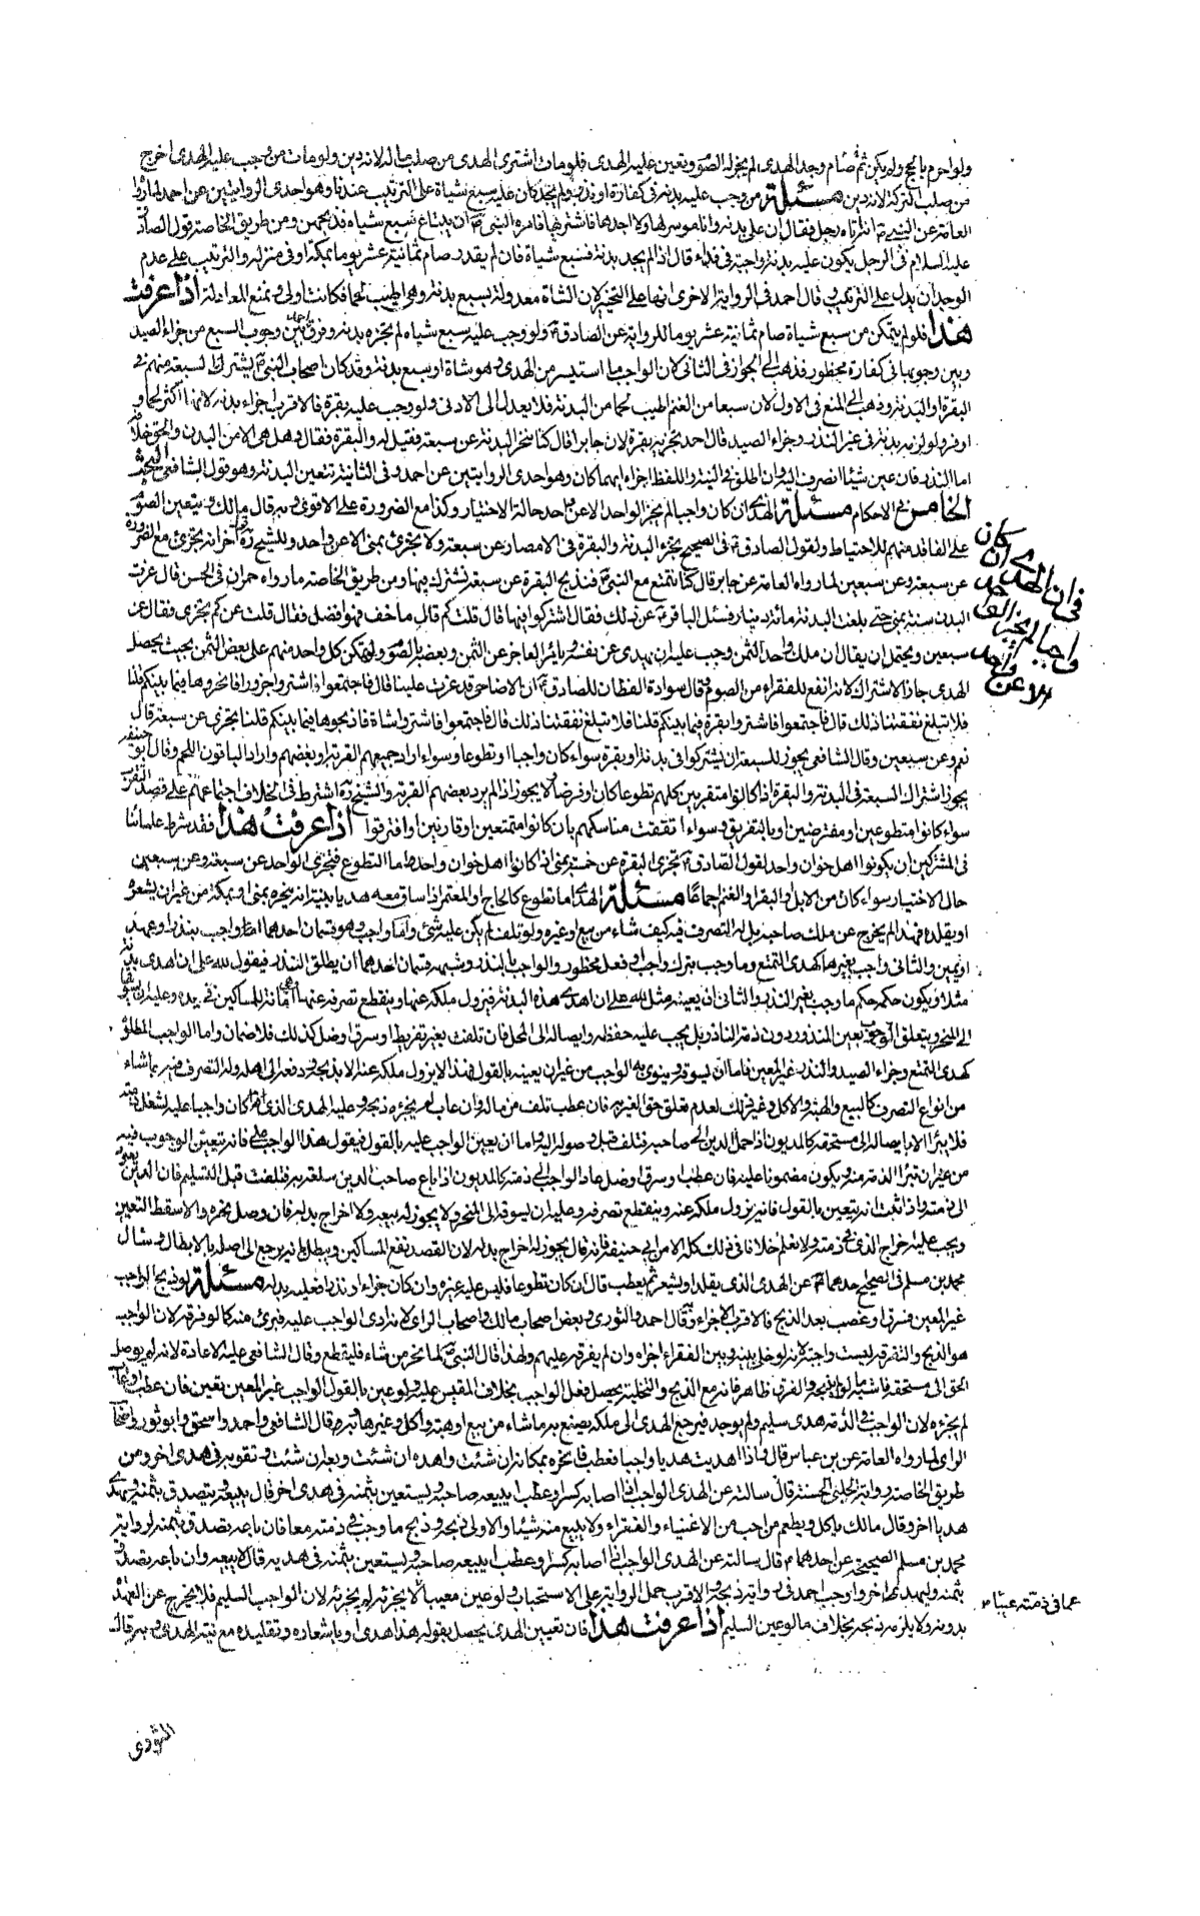 ولو احرم بالحج ولم يكن ثم صام وجد الهدى لم يجزله الصوم وتعين عليه الهدى فلو مات اشترى الهدى من صلب ماله لانه دين ولو مات من وجب عليه الهدى اخرج
من صلب التركة لانه دين مسئلة من وجب عليه بدنة في كفارة او نذر ولم يجد كان عليه سبع شياة على الترتيب عندنا وهو احدى الروايتين عن احمد لما رواه
العامة عن النبي ص انه اتاه رجل فقال ان على بدنة وانا موسر لها ولا اجدها فاشتريها فامره النبي ص ان يبتاع سبع شياه فيذبحهن ومن طريق الخاصة قول الصادق
عليه السلام في الرجل يكون عليه بدنة واجبة في فداء قال اذا لم يجد بدنة فسبع شياة فان لم يقدر صام ثمانية عشر يوما بمكة او في منزله والترتيب على عدم
الوجدان يدل على الترتيب وقال احمد في الرواية الاخرى انها على التخيير لان الشاة معدولة بسبع بدنة وهى اطيب لحما فكانت اولى ونمنع المعادلة اذا عرفت
هذا فلو لم يتمكن من سبع شياة صام ثمانية عشر يوما للرواية عن الصادق ع ولو وجب عليه سبع شياه لم يجزه بدنة وفرق احمد بين وجوب السبع من جزاء الصيد
وبين وجوبها في كفارة محظور فذهب الى الجواز في الثاني لان الواجب ما استيسر من الهدى وهو شاة او سبع بدنة وقد كان اصحاب النبي ص يشترك السبعة منهم في
البقرة او البدنة وذهب الى المنع في الاول لان سبعا من الغنم اطيب لحما من البدنة فلا يعدل الى الادنى ولو وجب عليه بقرة فالاقرب اجزاء بدنة لانها اكثر لحما و
اوفر ولو لزمه بدنة في غير النذر وجزاء الصيد قال احمد يجزيه بقرة لان جابرا قال كنا ننحر البدنة عن سبعة فقيل له والبقرة فقال وهل هي الا من البدن والحق خلافه
اما النذر فان عين شيئا انصرف اليه وان اطلق في النية واللفظ اجزاه ايهما كان وهو احدى الروايتين عن احمد وفي الثانية تتعين البدنة وهو قول الشافعي البحث
الخامس في الاحكام مسئلة الهدى ان كان واجبا لم يجز الواحد الا عن واحد حالة الاختيار وكذا مع الضرورة على الاقوى وبه قال مالك ويتعين الصوم
على الفاقد منهم للاحتياط ولقول الصادق ع في الصحيح يجزئ البدنة والبقرة في الامصار عن سبعة ولا يجزئ بمنى الا عن واحد وللشيخ ره قول اخر انه يجزئ مع الضرورة
عن سبعة وعن سبعين لما رواه العامة عن جابر قال كنا نتمتع مع النبي ص فنذبح البقرة عن سبعة نشترك فيها ومن طريق الخاصة ما رواه حمران في الحسن قال عزت
البدن سنة بمنى حتى بلغت البدنة مائة دينار فسئل الباقر ع عن ذلك فقال اشتركوا فيها قال قلت كم قال ما خف فهو افضل فقال قلت عن كم يجزى فقال عن
سبعين ويحتمل ان يقال ان ملك واحد الثمن وجب عليه ان يهدى عن نفسه ويأمر العاجز عن الثمن وبعضه بالصوم ولو تمكن كل واحد منهم على بعض الثمن بحيث يحصل
الهدى جاز الاشتراك لانه انفع للفقراء من الصوم وقال سوادة القطان للصادق ع ان الاضاحى قد عزت علينا قال فاجتمعوا فاشتروا جزورا فانحروها فيما بينكم قلنا
فلا تبلغ نفقتنا ذلك قال فاجتمعوا فاشتروا بقرة فيما بينكم قلنا فلا تبلغ نفقتنا ذلك قال فاجتمعوا فاشتروا شاة فاذبحوها فيما بينكم قلنا تجزى عن سبعة قال
نعم وعن سبعين وقال الشافعي يجوز للسبعة ان يشتركوا في بدنة او بقرة سواء كان واجبا او تطوعا وسواء اراد جميعهم القربة او بعضهم واراد الباقون اللحم وقال ابو حنيفة
يجوز اشتراك السبعة في البدنة والبقرة اذا كانوا متقربين كلهم تطوعا كان او فرضا ولا يجوز اذا لم يرد بعضهم القربة والشيخ ره اشترط في الخلاف اجتماعهم على قصد التقرب
سواء كانوا متطوعين او مفترضين او بالتفريق وسواء اتفقت مناسكهم بان كانوا متمتعين او قارنين او افترقوا اذا عرفت هذا فقد شرط علمائنا
في المشتركين ان يكونوا اهل خوان واحد لقول الصادق ع تجزى البقرة عن خمسة بمنى اذا كانوا اهل خوان واحد اما التطوع فتجزى الواحد عن سبعة وعن سبعين
حال الاختيار سواء كان من الابل او البقر او الغنم اجماعا مسئلة الهدى اما تطوع كالحاج او المعتمر اذا ساق معه هديا بنية انه ينحره بمنى او بمكة من غير ان يشعره
او يقلده فهذا لم يخرج عن ملك صاحبه بل له التصرف فيه كيف شاء من بيع او غيره ولو تلف لم يكن عليه شئ واما واجب وهو قسمان احدهما الواجب بنذر او عهد
او يمين والثاني واجب بغيرها كهدى التمتع وما وجب بترك واجب او فعل محظور والواجب بالنذر وشبهه قسمان احدهما ان يطلق النذر فيقول لله على ان اهدى بدنة
مثلا ويكون حكمه حكم ما وجب بغير النذر والثاني ان يعينه مثل لله على ان اهدى هذه البدنة فيزول ملكه عنها وينقطع تصرفه عنها وهى امانة للمساكين في يده وعليه ان يسوقها
الى المنحر ويتعلق الوجوب بعين المنذور دون ذمة الناذر بل يجب عليه حفظه وايصاله الى المحل فان تلفت بغير تفريط او سرق او ضل كذلك فلا ضمان واما الواجب المطلق
كهدى التمتع وجزاء الصيد والنذر غير المعين فاما ان يسوقه وينوى به الواجب من غير ان يعينه بالقول فهذا لا يزول ملكه عنه الا بذبحه ودفعه الى اهله وله التصرف فيه بما شاء
من انواع التصرف كالبيع والهبة والاكل وغير ذلك لعدم تعلق حق الغير به فان عطب تلف من ماله وان عاب لم يجزه ذبحه وعليه الهدى الذى كان واجبا عليه لشغل ذمته
فلا يبرأ الا بايصاله الى مستحقه كالمديون اذا حمل الدين الى صاحبه فتلف قبل وصوله اليه واما ان يعين الواجب عليه بالقول فيقول هذا الواجب على فانه يتعين الوجوب فيه
من غير ان تبرأ الذمة منه ويكون مضمونا عليه فان عطب او سرق او ضل عاد الواجب الى ذمته كالمديون اذا باع صاحب الدين سلعة به فتلفت قبل التسليم فان الدين يعود
الى ذمته واذا ثبت انه يتعين بالقول فانه يزول ملكه عنه وينقطع تصرفه وعليه ان يسوقه الى المنحر ولا يجوز له بيعه ولا اخراج بدله فان وصل نحره والا سقط التعيين
ويجب عليه اخراج الذى في ذمته ولا نعلم خلافا في ذلك كله الا من ابي حنيفة فانه قال يجوز له اخراج بدله لان القصد نفع المساكين ويبطل بانه يرجع الى اصله بالابطال وسأل
محمد بن مسلم في الصحيح احدهما ع عن الهدى الذى يقلد او يشعر ثم يعطب قال ان كان تطوعا فليس عليه غيره وان كان جزاء او نذرا فعليه بدله مسئلة لو ذبح الواجب
غير المعين فسرق او غصب بعد الذبح فالاقرب الاجزاء وبه قال احمد والثوري وبعض اصحاب مالك واصحاب الراى لانه ادى الواجب عليه فبرئ منه كما لو فرقه لان الواجب
هو الذبح والتفرقة ليست واجبة لانه لو خلى بينه وبين الفقراء اجزاه وان لم يفرقه عليهم ولهذا قال النبي ص لما نحر من شاء فليقطع وقال الشافعي عليه الاعادة لانه لم يوصل
الحق الى مستحقه فاشبه ما لو لم يذبحه والفرق ظاهر فانه مع الذبح والتخلية يحصل فعل الواجب بخلاف المقيس عليه ولو عين بالقول الواجب غير المعين تعين فان عطب او عاب
لم يجزه لان الواجب في الذمة هدى سليم ولم يوجد فيرجع الهدى الى ملكه يصنع به ما شاء من بيع او هبة واكل وغيرها وبه قال الشافعي واحمد واسحق وابو ثور واصحاب
الراى لما رواه العامة عن بن عباس قال واذا اهديت هديا واجبا فعطب فانحره بمكانه ان شئت واهده ان شئت وبعه ان شئت وتقو به في هدى اخر ومن
طريق الخاصة رواية الحلبي الحسنة قال سالته عن الهدى الواجب اذا اصابه كسر او عطب ايبيعه صاحبه ويستعين بثمنه في هدى اخر قال يبيعه ويتصدق بثمنه ويهدى
هديا اخر وقال مالك ياكل ويطعم من احب من الاغنياء والفقراء ولا يبيع منه شيئا والاولى ذبحه وذبح ما وجب في ذمته معا فان باعه تصدق بثمنه لرواية
محمد بن مسلم الصحيحة عن احدهما ع قال سالته عن الهدى الواجب اذا اصابه كسر او عطب ايبيعه صاحبه ويستعين بثمنه في هديه قال لا يبيعه وان باعه تصدق
بثمنه وليهد هديا اخر واوجب احمد في رواية ذبحه والاقرب حمل الرواية على الاستحباب ولو عين معيبا لا يجزئه لم يجزئه لان الواجب السليم فلا يخرج عن العهدة
بدونه ولا يلزمه ذبحه بخلاف ما لو عين السليم اذا عرفت هذا فان تعيين الهدى يحصل بقوله هذا هدى او باشعاره وتقليده مع نية الهدى وبه قال
في ان الهدى ان كان
واجبا لم يجز الواحد
الا عن واحد
عما في ذمته عيبا
الثوري